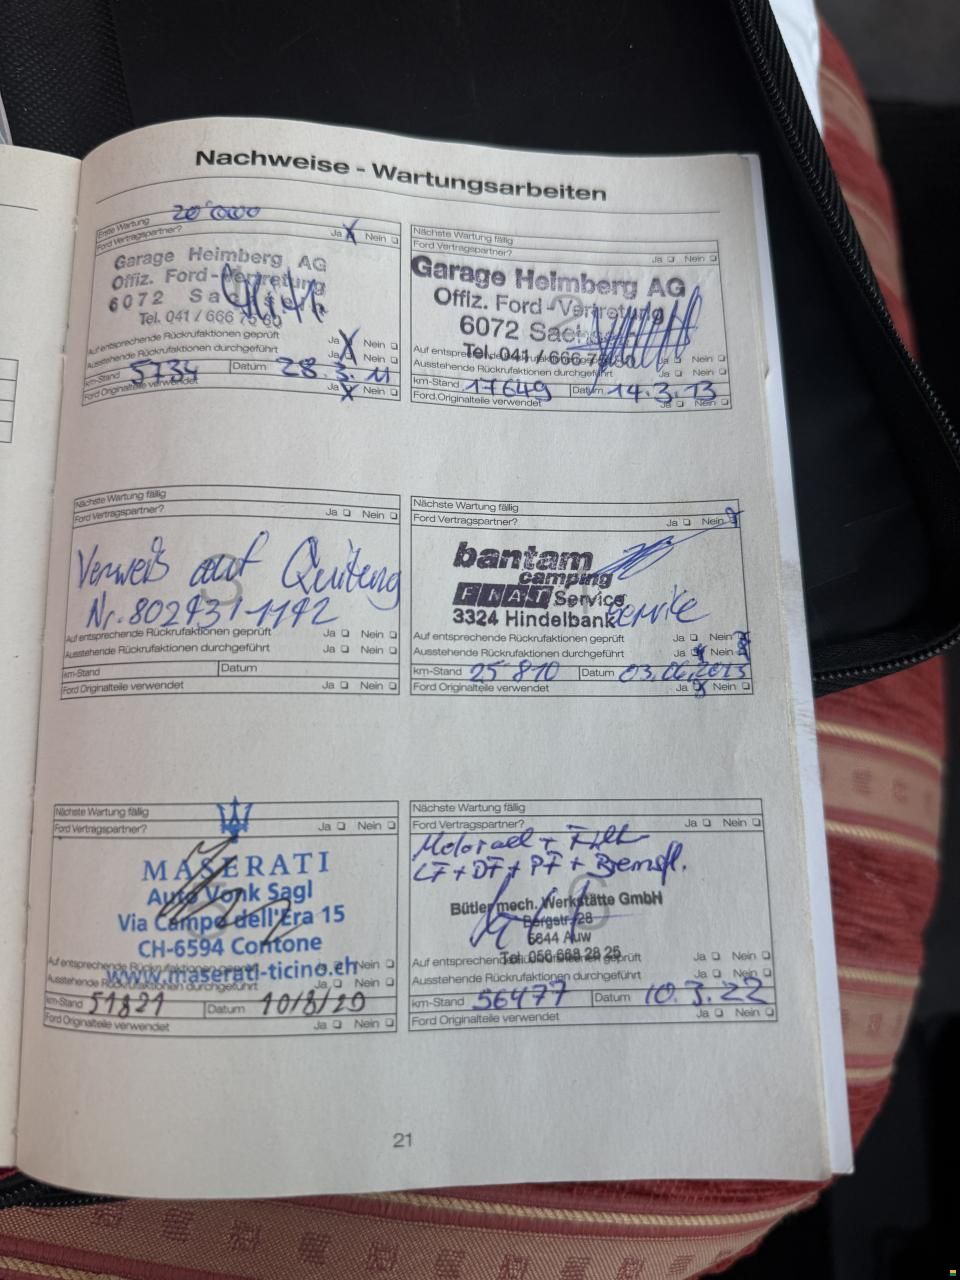 Nachweise - Wartungsarbeiten
Erste Wartung 20'000
Ford Vertragspartner? Ja X Nein
Garage Heimberg AG
Offiz. Ford-Vertretung
6072 Sachseln
Tel. 041 / 666 75 80
Auf entsprechende Rückrufaktionen geprüft Ja X Nein
Ausstehende Rückrufaktionen durchgeführt Ja X Nein
km-Stand 5734 Datum 28.3.11
Ford Originalteile verwendet Ja X Nein
Nächste Wartung fällig
Ford Vertragspartner? Ja Nein
Garage Heimberg AG
Offiz. Ford-Vertretung
6072 Sachseln
Tel. 041 / 666 75 80
Auf entsprechende Rückrufaktionen geprüft Ja Nein
Ausstehende Rückrufaktionen durchgeführt Ja Nein
km-Stand 17649 Datum 14.3.13
Ford Originalteile verwendet Ja Nein
Nächste Wartung fällig
Ford Vertragspartner? Ja Nein
Verweiß auf Quitung
Nr. 802431-1142
Auf entsprechende Rückrufaktionen geprüft Ja Nein
Ausstehende Rückrufaktionen durchgeführt Ja Nein
km-Stand Datum
Ford Originalteile verwendet Ja Nein
Nächste Wartung fällig
Ford Vertragspartner? Ja Nein
bantam
camping
FIAT Service
3324 Hindelbank Service
Auf entsprechende Rückrufaktionen geprüft Ja Nein
Ausstehende Rückrufaktionen durchgeführt Ja Nein
km-Stand 25 810 Datum 03.06.2015
Ford Originalteile verwendet Ja Nein
Nächste Wartung fällig
Ford Vertragspartner? Ja Nein
MASERATI
Auto Vonk Sagl
Via Campo dell'Era 15
CH-6594 Contone
Auf entsprechende Rückrufaktionen geprüft Ja Nein
www.maserati-ticino.ch
Ausstehende Rückrufaktionen durchgeführt Ja Nein
km-Stand 51821 Datum 10/8/20
Ford Originalteile verwendet Ja Nein
Nächste Wartung fällig
Ford Vertragspartner? Ja Nein
Motoroel + Filter
LF + DF + PF + Bremsfl.
Bütler mech. Werkstätte GmbH
Bergstr. 28
5644 Auw
Tel. 056 668 28 25
Auf entsprechende Rückrufaktionen geprüft Ja Nein
Ausstehende Rückrufaktionen durchgeführt Ja Nein
km-Stand 56477 Datum 10.3.22
Ford Originalteile verwendet Ja Nein
21